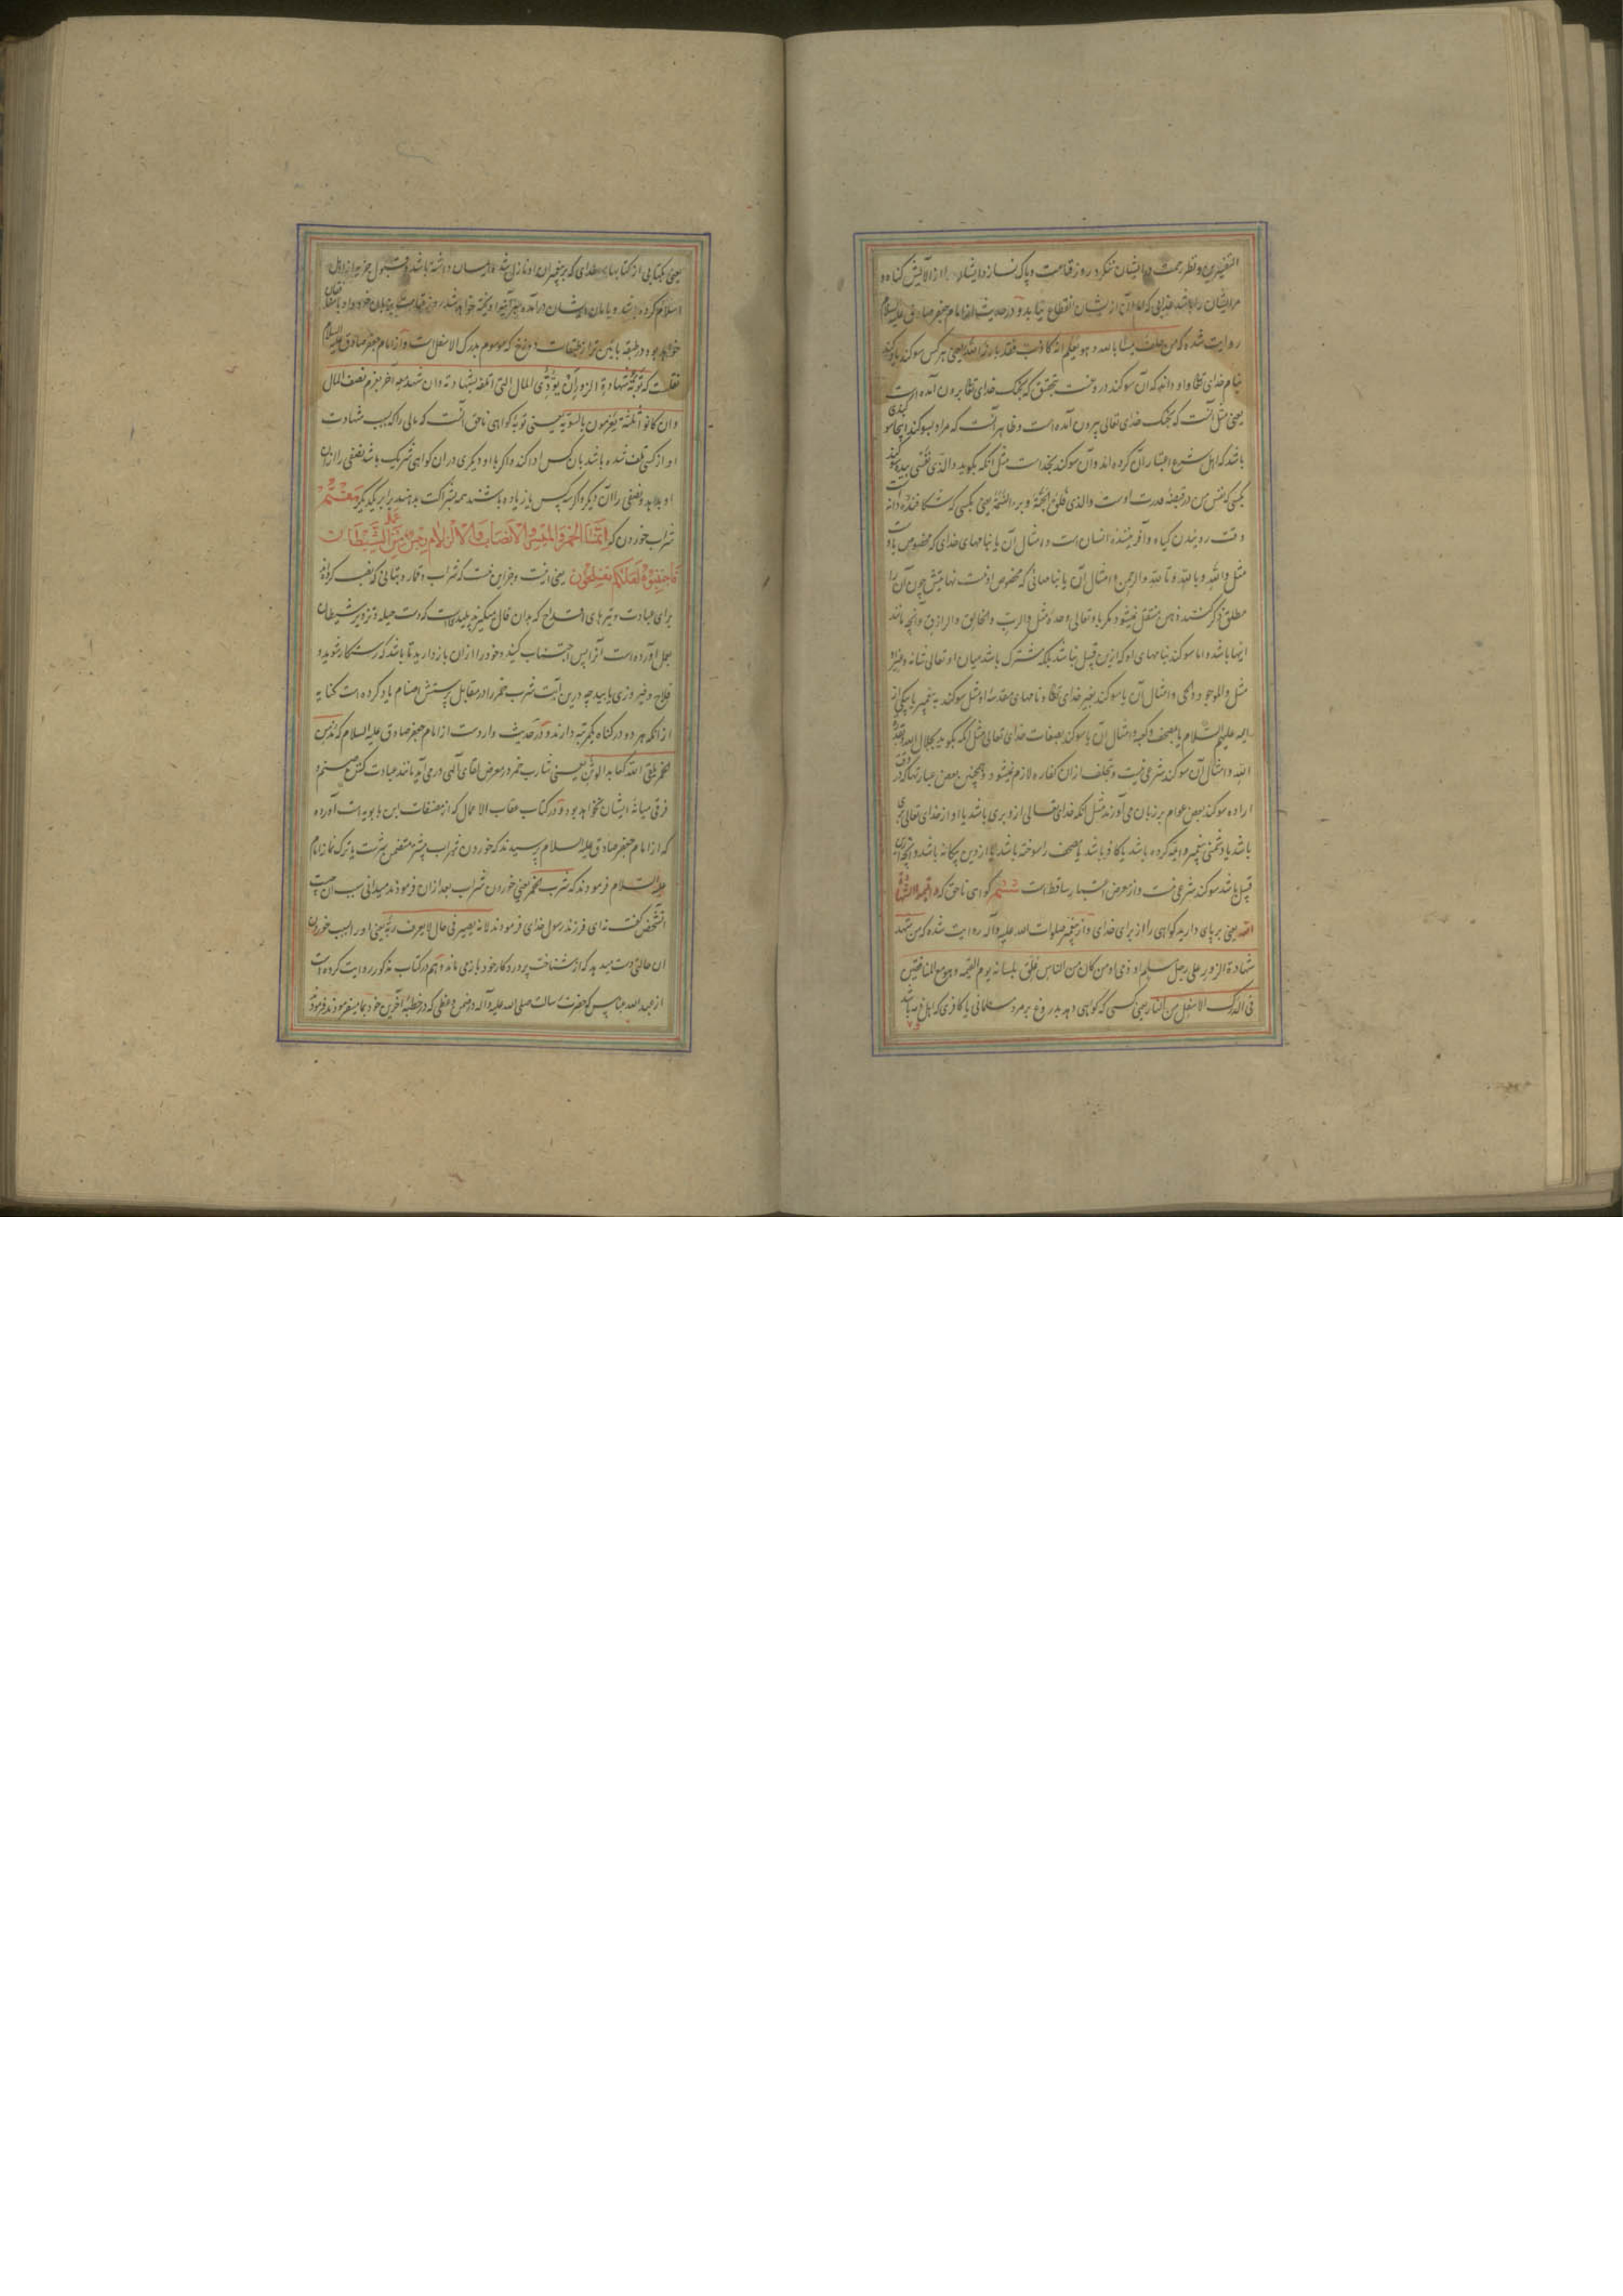 التفیذین و نظر رحمت در ایشان ننگرد روز قیامت و پاک نسازد ایشان را از آلایش گناه و
مر ایشان را باشد عذابی که الم آن از یشان انقطاع نیابد و در حدیث از امام جعفر صادق علیه السلام
روایت شده که من حلف یمینا بالله و هو یعلم انه کاذب فقد بارز الله یعنی هر کس سوکند یاد کند
بنام خدای تعالی و او داند که آن سوکند دروغست بتحقیق که بجنک خدای تعالی برون آمده است
یعنی مثل آنست که بجنک خدای تعالی بیرون آمده است و ظاهر آنست که مراد بسوکند اینجا سوکندی
باشد که اهل شرع اعتبار آن کرده اند و آن سوکند بخداست مثل آنکه بگوید والذی نفسی بیده یعنی سوکند
بکسی که نفس من در قبضهٔ قدرت اوست والذی فلق الحبة و برء النسمة یعنی بکسی که شکافندهٔ دانه است
وقت روئیدن گیاه و آفرینندهٔ انسان است و امثال آن یا بنامهای خدای که مخصوص باوست
مثل والله و بالله و تالله والرحمن و امثال آن یا بنامهائی که مخصوص او نیست نهایتش چون آن را
مطلق ذکر کنند ذهن منتقل نمیشود مگر باو تعالی وحده مثل والرب والخالق والرازق و آنچه مانند
اینها باشد و اما سوکند بنامهای او که ازین قبیل نباشد بلکه مشترک باشد میان او تعالی شانه و غیر او
مثل والموجود والحی و امثال آن یا سوکند بغیر خدای تعالی و نامهای مقدسهٔ او مثل سوکند به پیغمبر یا بیکی از
ایمه علیهم السلام یا بمصحف و کعبه و امثال آن یا سوکند بصفات خدای تعالی مثل آنکه بگوید بجلال الله و قدرة
الله و امثال آن سوکند شرعی نیست و بتخلف ازان کفاره لازم نمیشود و همچنین بعض عبارتها که در وقت
اراده سوکند بعض عوام بر زبان می آورند مثل آنکه خدای تعالی ازو بری باشد یا او از خدای تعالی بری
باشد یا دشمنی پیغمبر و ایمه کرده باشد یا کافر باشد یا مصحف را سوخته باشد یا از دین بیگانه باشد و آنچه ازین
قبیل باشد سوکند شرعی نیست و از معرض اعتبار ساقط است ششم گواهی ناحق که و اقیموا الشهادة
لله یعنی برپای دارید گواهی را از برای خدای و از پیغمبر صلوات الله علیه و آله روایت شده که من شهد
شهادة الزور علی رجل مسلم او ذمی او من کان من الناس علق بلسانه یوم القیمه و هو مع المنافقین
فی الدرک الاسفل من النار یعنی کسی که گواهی دهد بدروغ بر مرد مسلمانی یا کافری که اهل ذمه باشد
یعنی بکتابی از کتابهای خدای که بر پیغمبران او نازل شد ایمان داشته باشد و قبول جزیه از اهل
اسلام کرده باشد و یا مان ایشان درآمده بغیر آنها آویخته خواهد شد روز قیامت بزبان خود و او با منافقان
خواهد بود در طبقه پائین تر از طبقات دوزخ که موسوم بدرک الاسفل است و از امام جعفر صادق علیه السلام
نقلست که توبة شهادة الزور ان یؤدی المال الذی اتلفه بشهادته و ان شهد معه آخر یغرم نصف المال
و ان کانوا ثلثة یغرمون بالسویه یعنی توبهٔ گواهی ناحق آنست که مالی را که بسبب شهادت
او از کسی تلف شده باشد بآن کس ادا کند و اگر با او دیگری در ان گواهی شریک باشد نصفی را ازان
او بدهد و نصفی را آن دیگر و اگر سه کس یا زیاده باشند همه بشراکت بدهند برابر یکدیگر هفتم
شراب خوردن که انما الخمر والمیسر والانصاب والازلام رجس من عمل الشیطان
فاجتنبوه لعلکم تفلحون یعنی اینست و جز این نیست که شراب و قمار و بتانی که نصب کرده اند
برای عبادت و تیرهای اقتداح که بدان فال میگیرند پلیدیست که دست حیله و تزویر شیطان
بعمل آورده است آنرا پس اجتناب کنید و خود را ازان باز دارید تا باشد که رستکار شوید و
فلاح و فیروزی یابید چه درین آیت شرب خمر را در مقابل پرستش اصنام یاد کرده است کنایه
از آنکه هر دو در گناه یکمرتبه دارند و در حدیث واردست از امام جعفر صادق علیه السلام که مدمن
الخمر یلقی الله کعابد الوثن یعنی شارب خمر در معرض لقای الهی درمی آید مانند عبادت کننده صنم و
فرقی میانه ایشان نخواهد بود و در کتاب عقاب الاعمال که از مصنفات ابن بابویه است آورده
که از امام جعفر صادق علیه السلام پرسیدند که خوردن شراب بیشتر متضمن شرست یا ترک نماز امام
علیه السلام فرمودند که شرب الخمر یعنی خوردن شراب بعد ازان فرمودند میدانی سبب آن چیست
آنشخص گفت نه ای فرزند رسول خدای فرمودند لانه یصیر فی حال لا یعرف ربه یعنی او را بسبب خوردن
آن حالتی دست میدهد که از شناخت پروردگار خود بازمی ماند و هم در کتاب مذکور روایت کرده است
از عبد الله عباس که حضرت رسالت صلی الله علیه و آله در ضمن وعظی که در خطبهٔ آخرین خود بما میفرمودند فرمود